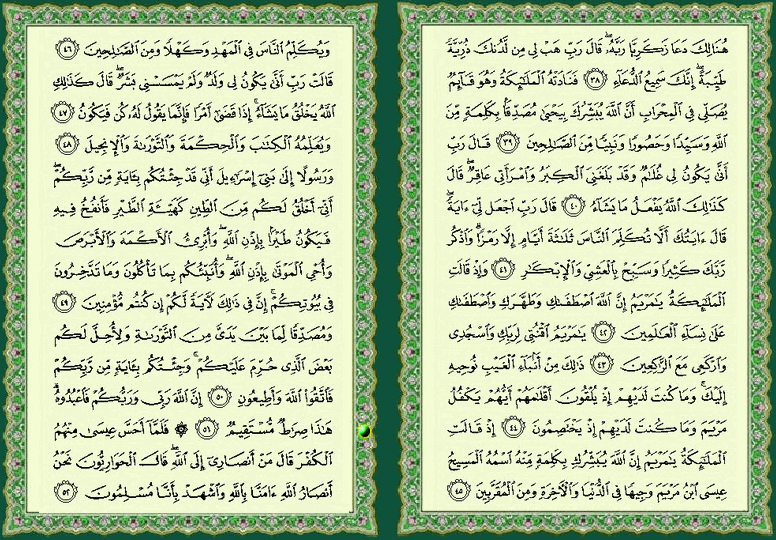 هُنَالِكَ دَعَا زَكَرِيَّا رَبَّهُۥ ۖ قَالَ رَبِّ هَبْ لِى مِن لَّدُنكَ ذُرِّيَّةً
طَيِّبَةً ۖ إِنَّكَ سَمِيعُ ٱلدُّعَآءِ ٣٨ فَنَادَتْهُ ٱلْمَلَـٰٓئِكَةُ وَهُوَ قَآئِمٌ
يُصَلِّى فِى ٱلْمِحْرَابِ أَنَّ ٱللَّهَ يُبَشِّرُكَ بِيَحْيَىٰ مُصَدِّقًۢا بِكَلِمَةٍ مِّنَ
ٱللَّهِ وَسَيِّدًا وَحَصُورًا وَنَبِيًّا مِّنَ ٱلصَّـٰلِحِينَ ٣٩ قَالَ رَبِّ
أَنَّىٰ يَكُونُ لِى غُلَـٰمٌ وَقَدْ بَلَغَنِىَ ٱلْكِبَرُ وَٱمْرَأَتِى عَاقِرٌ ۖ قَالَ
كَذَٰلِكَ ٱللَّهُ يَفْعَلُ مَا يَشَآءُ ٤٠ قَالَ رَبِّ ٱجْعَل لِّىٓ ءَايَةً ۖ
قَالَ ءَايَتُكَ أَلَّا تُكَلِّمَ ٱلنَّاسَ ثَلَـٰثَةَ أَيَّامٍ إِلَّا رَمْزًا ۗ وَٱذْكُر
رَّبَّكَ كَثِيرًا وَسَبِّحْ بِٱلْعَشِىِّ وَٱلْإِبْكَـٰرِ ٤١ وَإِذْ قَالَتِ
ٱلْمَلَـٰٓئِكَةُ يَـٰمَرْيَمُ إِنَّ ٱللَّهَ ٱصْطَفَىٰكِ وَطَهَّرَكِ وَٱصْطَفَىٰكِ
عَلَىٰ نِسَآءِ ٱلْعَـٰلَمِينَ ٤٢ يَـٰمَرْيَمُ ٱقْنُتِى لِرَبِّكِ وَٱسْجُدِى
وَٱرْكَعِى مَعَ ٱلرَّٰكِعِينَ ٤٣ ذَٰلِكَ مِنْ أَنۢبَآءِ ٱلْغَيْبِ نُوحِيهِ
إِلَيْكَ ۚ وَمَا كُنتَ لَدَيْهِمْ إِذْ يُلْقُونَ أَقْلَـٰمَهُمْ أَيُّهُمْ يَكْفُلُ
مَرْيَمَ وَمَا كُنتَ لَدَيْهِمْ إِذْ يَخْتَصِمُونَ ٤٤ إِذْ قَالَتِ
ٱلْمَلَـٰٓئِكَةُ يَـٰمَرْيَمُ إِنَّ ٱللَّهَ يُبَشِّرُكِ بِكَلِمَةٍ مِّنْهُ ٱسْمُهُ ٱلْمَسِيحُ
عِيسَى ٱبْنُ مَرْيَمَ وَجِيهًا فِى ٱلدُّنْيَا وَٱلْـَٔاخِرَةِ وَمِنَ ٱلْمُقَرَّبِينَ ٤٥
وَيُكَلِّمُ ٱلنَّاسَ فِى ٱلْمَهْدِ وَكَهْلًا وَمِنَ ٱلصَّـٰلِحِينَ ٤٦
قَالَتْ رَبِّ أَنَّىٰ يَكُونُ لِى وَلَدٌ وَلَمْ يَمْسَسْنِى بَشَرٌ ۖ قَالَ كَذَٰلِكِ
ٱللَّهُ يَخْلُقُ مَا يَشَآءُ ۚ إِذَا قَضَىٰٓ أَمْرًا فَإِنَّمَا يَقُولُ لَهُۥ كُن فَيَكُونُ ٤٧
وَيُعَلِّمُهُ ٱلْكِتَـٰبَ وَٱلْحِكْمَةَ وَٱلتَّوْرَىٰةَ وَٱلْإِنجِيلَ ٤٨
وَرَسُولًا إِلَىٰ بَنِىٓ إِسْرَٰٓءِيلَ أَنِّى قَدْ جِئْتُكُم بِـَٔايَةٍ مِّن رَّبِّكُمْ ۖ
أَنِّىٓ أَخْلُقُ لَكُم مِّنَ ٱلطِّينِ كَهَيْـَٔةِ ٱلطَّيْرِ فَأَنفُخُ فِيهِ
فَيَكُونُ طَيْرًۢا بِإِذْنِ ٱللَّهِ ۖ وَأُبْرِئُ ٱلْأَكْمَهَ وَٱلْأَبْرَصَ
وَأُحْىِ ٱلْمَوْتَىٰ بِإِذْنِ ٱللَّهِ ۖ وَأُنَبِّئُكُم بِمَا تَأْكُلُونَ وَمَا تَدَّخِرُونَ
فِى بُيُوتِكُمْ ۚ إِنَّ فِى ذَٰلِكَ لَـَٔايَةً لَّكُمْ إِن كُنتُم مُّؤْمِنِينَ ٤٩
وَمُصَدِّقًا لِّمَا بَيْنَ يَدَىَّ مِنَ ٱلتَّوْرَىٰةِ وَلِأُحِلَّ لَكُم
بَعْضَ ٱلَّذِى حُرِّمَ عَلَيْكُمْ ۚ وَجِئْتُكُم بِـَٔايَةٍ مِّن رَّبِّكُمْ
فَٱتَّقُوا۟ ٱللَّهَ وَأَطِيعُونِ ٥٠ إِنَّ ٱللَّهَ رَبِّى وَرَبُّكُمْ فَٱعْبُدُوهُ ۗ
هَـٰذَا صِرَٰطٌ مُّسْتَقِيمٌ ٥١ ۞ فَلَمَّآ أَحَسَّ عِيسَىٰ مِنْهُمُ
ٱلْكُفْرَ قَالَ مَنْ أَنصَارِىٓ إِلَى ٱللَّهِ ۖ قَالَ ٱلْحَوَارِيُّونَ نَحْنُ
أَنصَارُ ٱللَّهِ ءَامَنَّا بِٱللَّهِ وَٱشْهَدْ بِأَنَّا مُسْلِمُونَ ٥٢